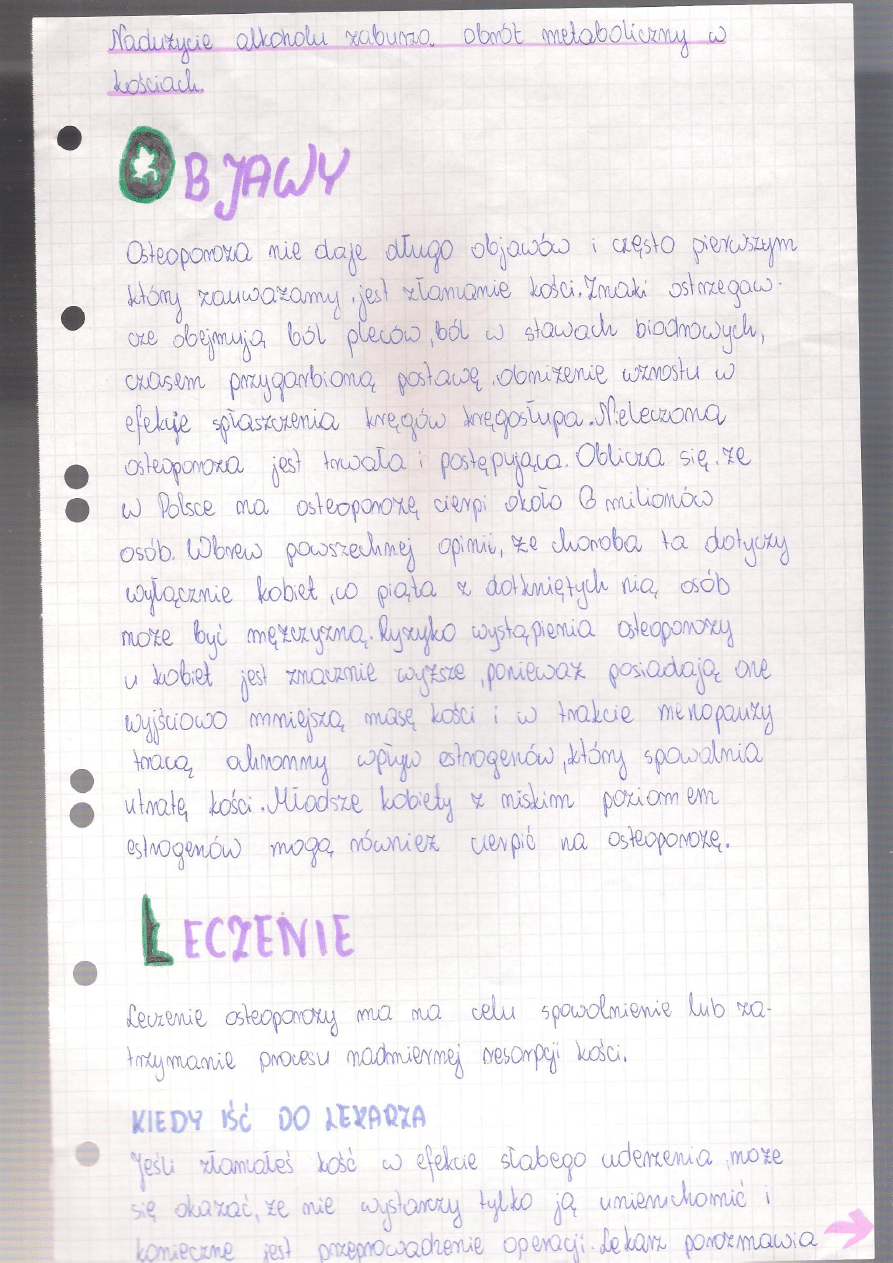 Nadużycie alkoholu zaburza obrót metaboliczny w
kościach.
OBJAWY
Osteoporoza nie daje długo objawów i często pierwszym
który zauważamy, jest złamanie kości. Znaki ostrzegaw-
cze obejmują ból pleców, ból w stawach biodrowych,
czasem przygarbioną postawę, obniżenie wzrostu w
efekcje spłaszczenia kręgów kręgosłupa. Nieleczona
osteoporoza jest trwała i postępująca. Oblicza się, że
w Polsce na osteoporozę cierpi około 3 milionów
osób. Wbrew powszechnej opinii, że choroba ta dotyczy
wyłącznie kobiet, co piąta z dotkniętych nią osób
może być mężczyzną. Ryzyko wystąpienia osteoporozy
u kobiet jest znacznie wyższe, ponieważ posiadają one
wyjściowo mniejszą masę kości i w trakcie menopauzy
tracą ochronny wpływ estrogenów, który spowalnia
utratę kości. Młodsze kobiety z niskim poziomem
estrogenów mogą również cierpić na osteoporozę.
LECZENIE
Leczenie osteoporozy ma na celu spowolnienie lub za-
trzymanie procesu nadmiernej resorpcji kości.
KIEDY IŚĆ DO LEKARZA
Jeśli złamałeś kość w efekcie słabego uderzenia, może
się okazać, że nie wystarczy tylko ją unieruchomić i
konieczne jest przeprowadzenie operacji. Lekarz porozmawia